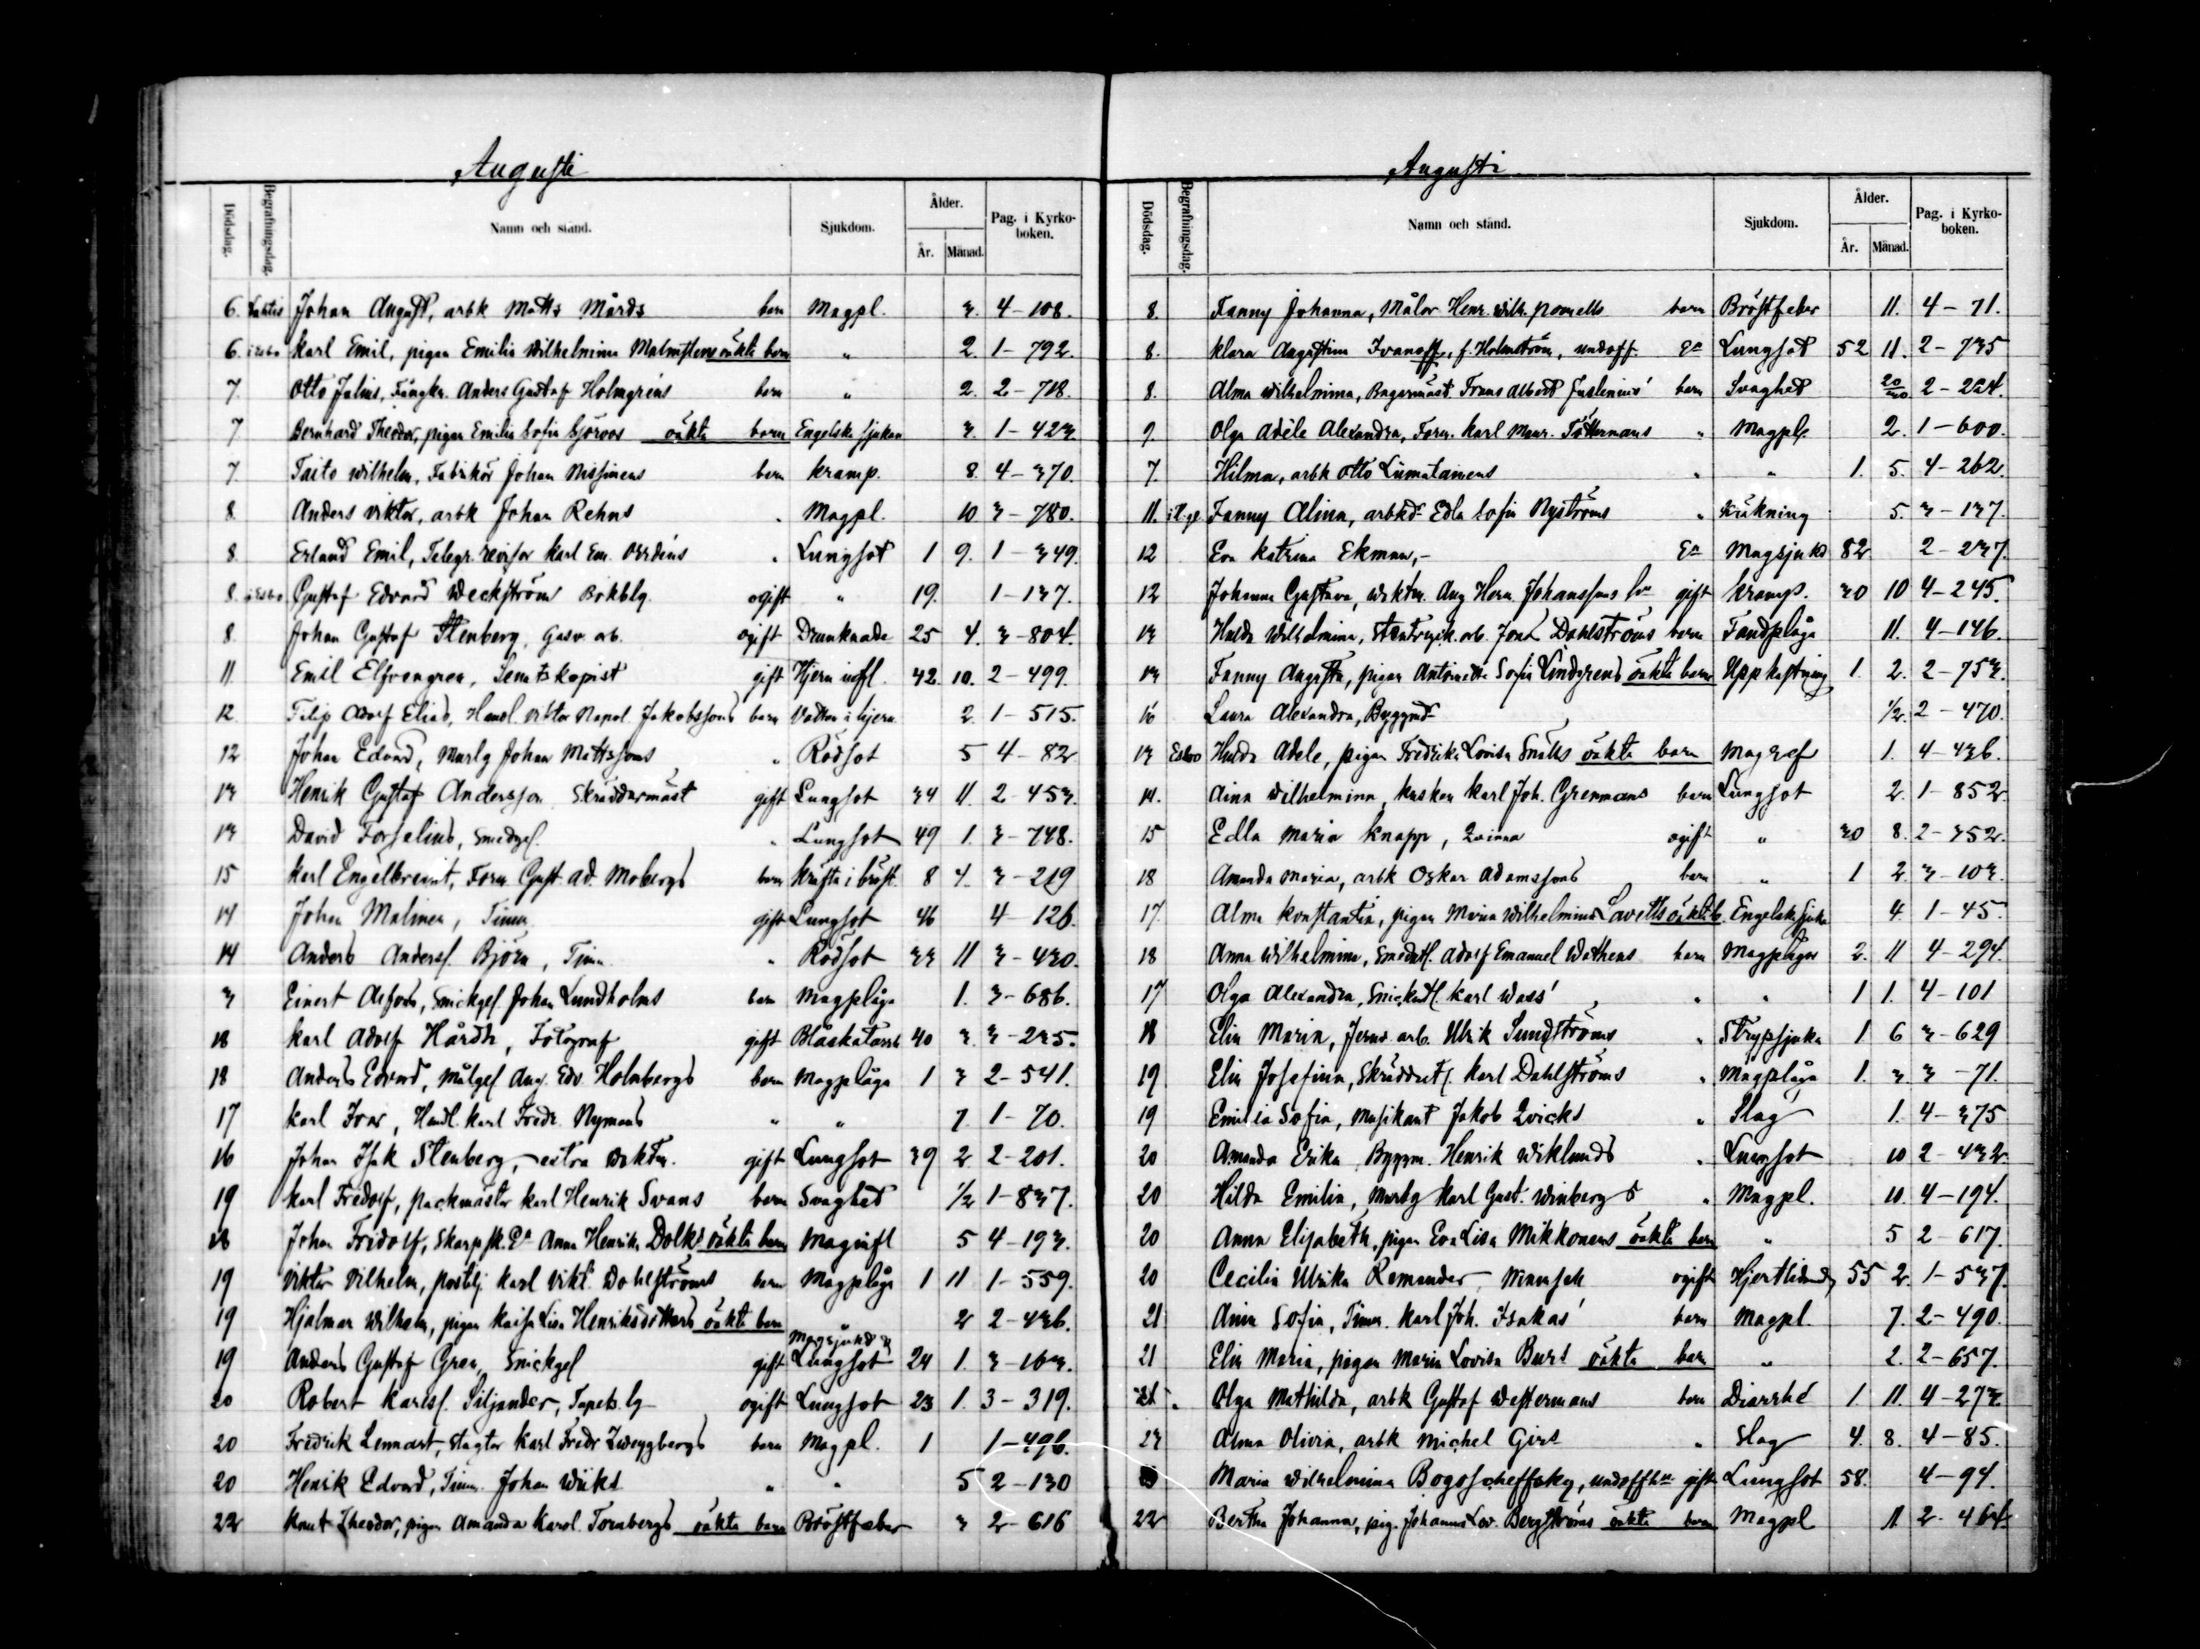 Augusti
Dödsdag. Begrafningsdag. Namn och stånd. Sjukdom. Ålder. År. Månad. Pag. i Kyrkoboken.
6. Johan August, arbk Matts Mårds barn Magpl. 3. 4-108.
6. Karl Emil, pigan Emilia Wilhelmina Malmstens oäkta barn " 2. 1-792.
7. Otto Julius, Fångkn. Anders Gustaf Holmgrens barn " 2. 2-718.
7 Bernhard Theodor, pigan Emilia Sofia Sjöroos oäkta barn Engelska sjukan 3. 1-423.
7. Taito Wilhelm, Fabrikör Johan Nissinens barn Kramp. 8. 4-370.
8. Anders Viktor, arbk Johan Rehns " Magpl. 10 3-780.
8. Erland Emil, Telegr. revisor Karl Em. " Lungsot 1 9. 1-349.
8. Gustaf Edvard Weckström Bokblg. ogift " 19. 1-137.
8. Johan Gustaf Stenberg, Gasv. arb. ogift Drunknade 25 4. 3-804.
11 Emil Elfvengren, Senatskopist gift Hjern infl. 42. 10. 2-499.
12. Filip Adolf Elias, Handl. Viktor Napol. Jakobssons barn Vatten i hjern 2. 1-515.
12 Johan Edvard, Murlg Johan Mattssons " Rödsot 5 4-82
13 Henrik Gustaf Andersson Skräddarmäst gift Lungsot 34 11. 2-453.
13 David Forselius, Smidgs. " Lungsot 49 1. 3-748.
15 Karl Engelbrecht, Form Gust. Ad. Mobergs barn Kräfta i bröst. 8 4. 3-219
14 Johan Malinen, Timm. gift Lungsot 46 4-126.
14 Anders Anderss. Björn, Timm. " Rödsot 33 11 3-430.
3 Einert Alfons, Snickgs. Johan Lundholms barn Magplåga 1. 3-686.
18 Karl Adolf Hårdh, Fotograf gift Blåskatarrh 40 3. 3-235.
18 Anders Edvard, Målgs. Aug. Edv. Holmbergs barn Magplåga 1 3 2-541.
17 Karl Ivar, Handl. Karl Fredr. Nymans " " 7. 1-70.
16 Johan Isak Stenberg, extra vaktm. gift Lungsot 39 2 2-201.
19 Karl Fredolf, packmästar Karl Henrik Svans barn Svaghet 1/2 1-837.
18 Johan Fridolf, Skarpsk. Ea Anna Henrika Dolks oäkta barn Maginfl 5 4-193.
19 Viktor Vilhelm, postilj. Karl Vikt. Wahlströms barn Magplåga 1 11 1-559.
19 Hjalmar Wilhelm, pigan Kaisa Lisa Henriksdotters oäkta barn Magsjukd. 2 2-436.
19 Anders Gustaf Gren, Snickgs gift Lungsot 24 1. 3-163.
20 Robert Karlss. Siljander, Tapets. lg ogift Lungsot 23 1. 3-319.
20 Fredrik Lennart, slagtar Karl Fredr Zweygbergs barn Magpl. 1 1-496.
20 Henrik Edvard, Timm. Johan Wiiks " " 5 2-130
22 Knut Theodor, pigan Amanda Karol. Tornbergs oäkta barn Bröstfeber 3 2-616
Augusti
Dödsdag. Begrafningsdag. Namn och stånd. Sjukdom. Ålder. År. Månad. Pag. i Kyrkoboken.
8. Fanny Johanna, Målar Henr. Wilh. barn Bröstfeber 11. 4-71.
8. Klara Augustina Ivanoff, f. Holmström, undoff. Ea Lungsot 52 11. 2-735
8. Alma Wilhelmina, Bagarmäst. Frans Albert Juslenius' barn Svaghet 20/30 2-224.
9. Olga Adéle Alexandra, Form. Karl Maur. Töttermans " Magpl. 2. 1-600.
7. Hilma, arbk Otto Liimatainens " " 1. 5. 4-262.
11. Fanny Alina, arbkd. Edla Sofia Nyströms " Kikning 5. 3-137.
12 Eva Katrina Ekman,- Ea Magsjukd 82 2-237.
12 Johanna Gustava, Waktm. Aug Herm. Johanssons hu gift Kramp. 30 10 4-245.
13 Hulda Wilhelmina, Stentryck. arb. Jons Dahlströms barn Tandplåga 11. 4-146.
13 Fanny Augusta, pigan Antoinette Sofia Lindgrens oäkta barn Uppkastning 1. 2. 2-753.
16 Laura Alexandra, Byggm. 1/2. 2-470.
13 Esbo Hulda Adele, pigan Fredrika Lovisa Snälls oäkta barn Magref 1. 4-436.
14. Aina Wilhelmina, kusken Karl Joh. Grenmans barn Lungsot 2. 1-852.
15 Edla Maria Knapp, Qvinna ogift " 30 8. 2-352.
18 Amanda Maria, arbk Oskar Adamssons barn " 1 2. 3-103.
17. Alma Konstantia, pigan Maria Wilhelmina Lavetts oäkta b. Engelska sjukan 4. 1-45.
18 Anna Wilhelmina, Adolf Emanuel Wathens barn Magplågor 2. 11 4-294.
17 Olga Alexandra, Karl Wass' " " 1 1. 4-101
18 Elin Maria, Jernv. arb. Ulrik Sundströms " Strypsjuka 1 6 3-629
19 Elin Josefina, Karl Dahlströms " Magplåga 1. 3. 3-71.
19 Emilia Sofia, Musikant Jakob Qvicks " Slag 1. 4-375
20 Amanda Erika, Byggm. Henrik Wiklunds " Lungsot 10 2-432.
20 Hilda Emilia, Murlg Karl Gust. Winbergs " Magpl. 10. 4-194.
20 Anna Elisabeth, pigan Eva Lisa Mikkonens oäkta barn " 5 2-617.
20 Cecilia Ulrika Remander, Mamsell ogift Hjertlidande 55 2. 1-537.
21 Aina Sofia, Timm. Karl Joh. Isakas' barn Magpl. 7. 2-490.
21 Elin Maria, pigan Maria Lovisa Burs oäkta barn " 2. 2-657.
21. " Olga Mathilda, arbk Gustaf Westermans barn Diarrhé 1. 11. 4-273.
23 Alma Olivia, arbk Michel Girs " Slag 4. 8. 4-85.
Maria Wilhelmina Bogoscheffsky, undoffh. gift Lungsot 58. 4-94.
22 Bertha Johanna, pig. Johanna Lov. Bergströms oäkta barn Magpl 11. 2-464.